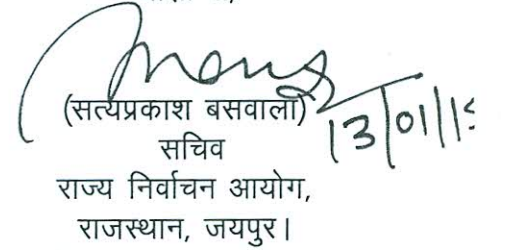 (सत्यप्रकाश बसवाला)
13/01/15
सचिव
राज्य निर्वाचन आयोग,
राजस्थान, जयपुर।